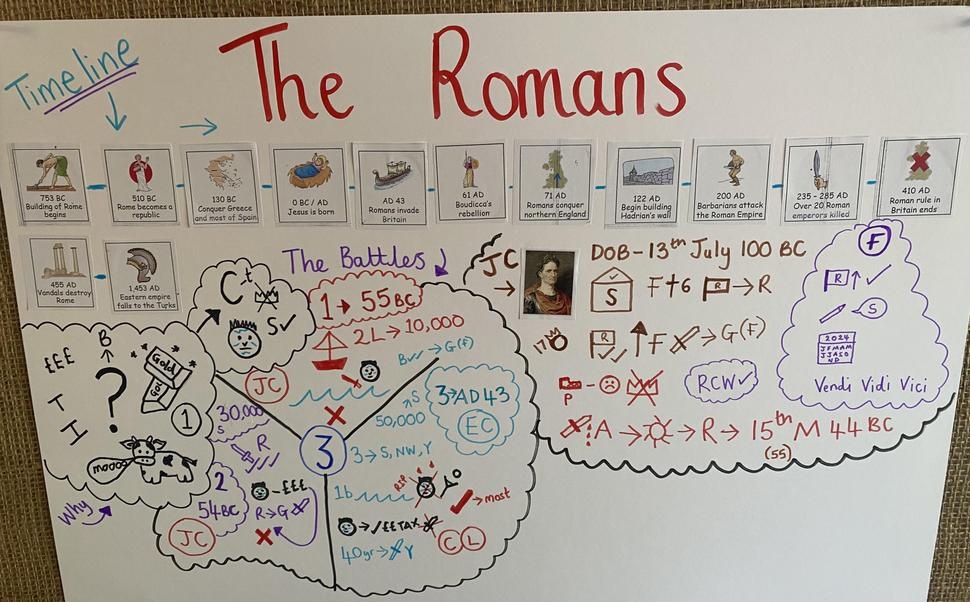 The Romans
Timeline
753 BC
Building of Rome
begins
510 BC
Rome becomes a
republic
130 BC
Conquer Greece
and most of Spain
0 BC / AD
Jesus is born
AD 43
Romans invade
Britain
61 AD
Boudicca's
rebellion
71 AD
Romans conquer
northern England
122 AD
Begin building
Hadrian's wall
200 AD
Barbarians attack
the Roman Empire
235 - 285 AD
Over 20 Roman
emperors killed
410 AD
Roman rule in
Britain ends
455 AD
Vandals destroy
Rome
1,453 AD
Eastern empire
falls to the Turks
£££
B
Gold
T
?
H
1
mooo
Why
Ct
S✓
The Battles
1 → 55 BC
2L → 10,000
JC
B → G(f)
3
30,000
S
R
2
54BC
JC
-£££
R→G
50,000
S
3→AD43
EC
3→S, NW, Y
1b
RIP
most
→ ✓££TAX
CL
40yr → Y
JC
→
DOB - 13th July 100 BC
S
F+6 R → R
17
R
F → G(F)
P
RCW✓
A → → R → 15th M 44 BC
(55)
F
R ↑ ✓
S
2024
JFMAM
JJASO
ND
Vendi Vidi Vici